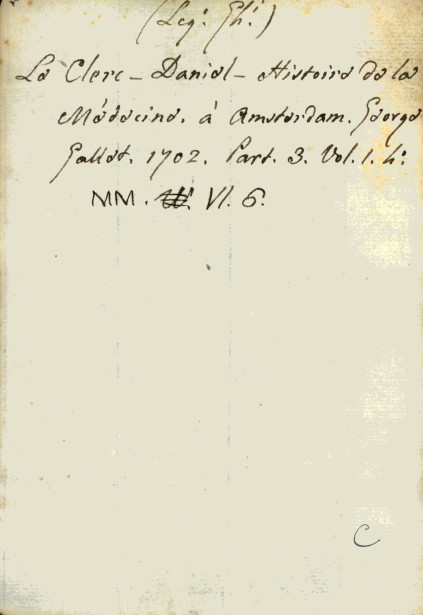 (Leg: Gh:)
Le Clerc - Daniel - Histoire de la
Médecine. à Amsterdam. George
Gallet. 1702. Part. 3. Vol. 1. 4:
MM. VI. 6.
C